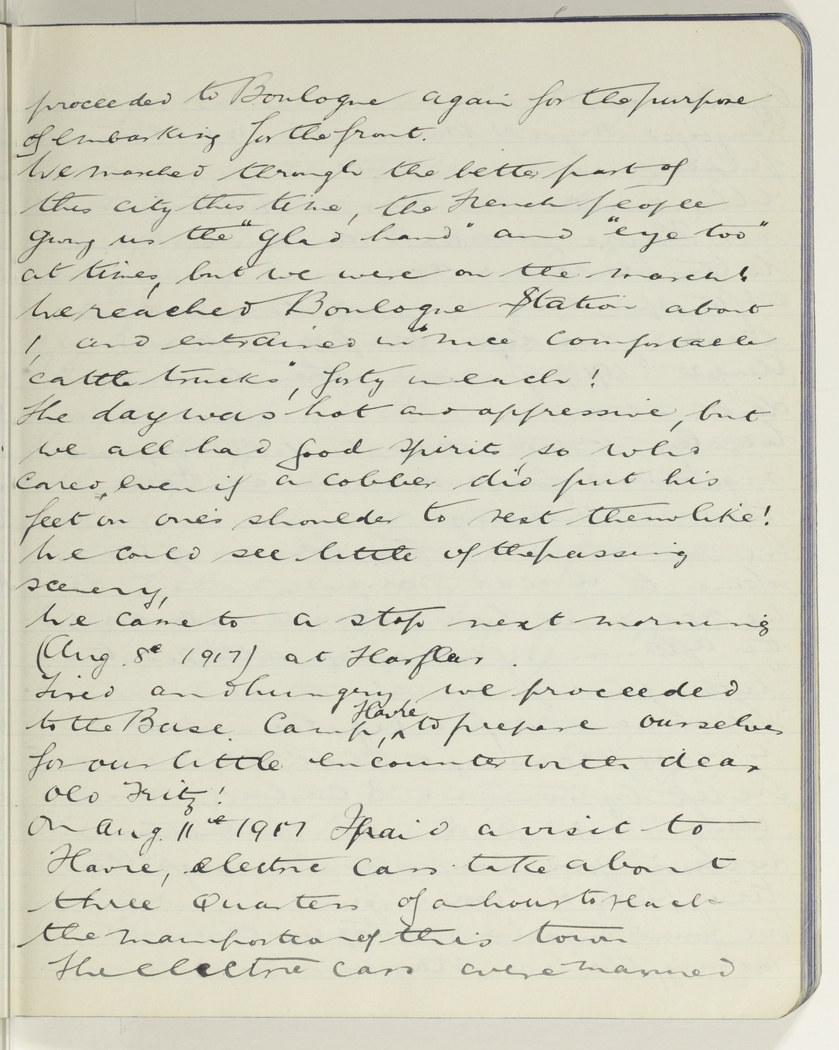 proceeded to Boulogne again for the purpose
of embarking for the front.
We marched through the better part of
this city this time, the French people
giving us the "glad hand" and "eye too"
at times, but we were on the march!
We reached Boulogne Station about
1, and entrained in "nice comfortable
cattle trucks", forty in each!
The day was hot and oppressive, but
we all had good spirits, so who
cared, even if a cobber did put his
feet on one's shoulder to rest them like!
We could see little of the passing
scenery,
We came to a stop next morning
(Aug. 8th 1917) at Harfleur.
Tired and hungry we proceeded
to the Base Camp, Havre, to prepare ourselves
for our little encounter with dear
old Fritz!
On Aug. 11th 1917 I paid a visit to
Havre, electric cars take about
three quarters of an hour to reach
the main portion of this town
The electric cars were manned